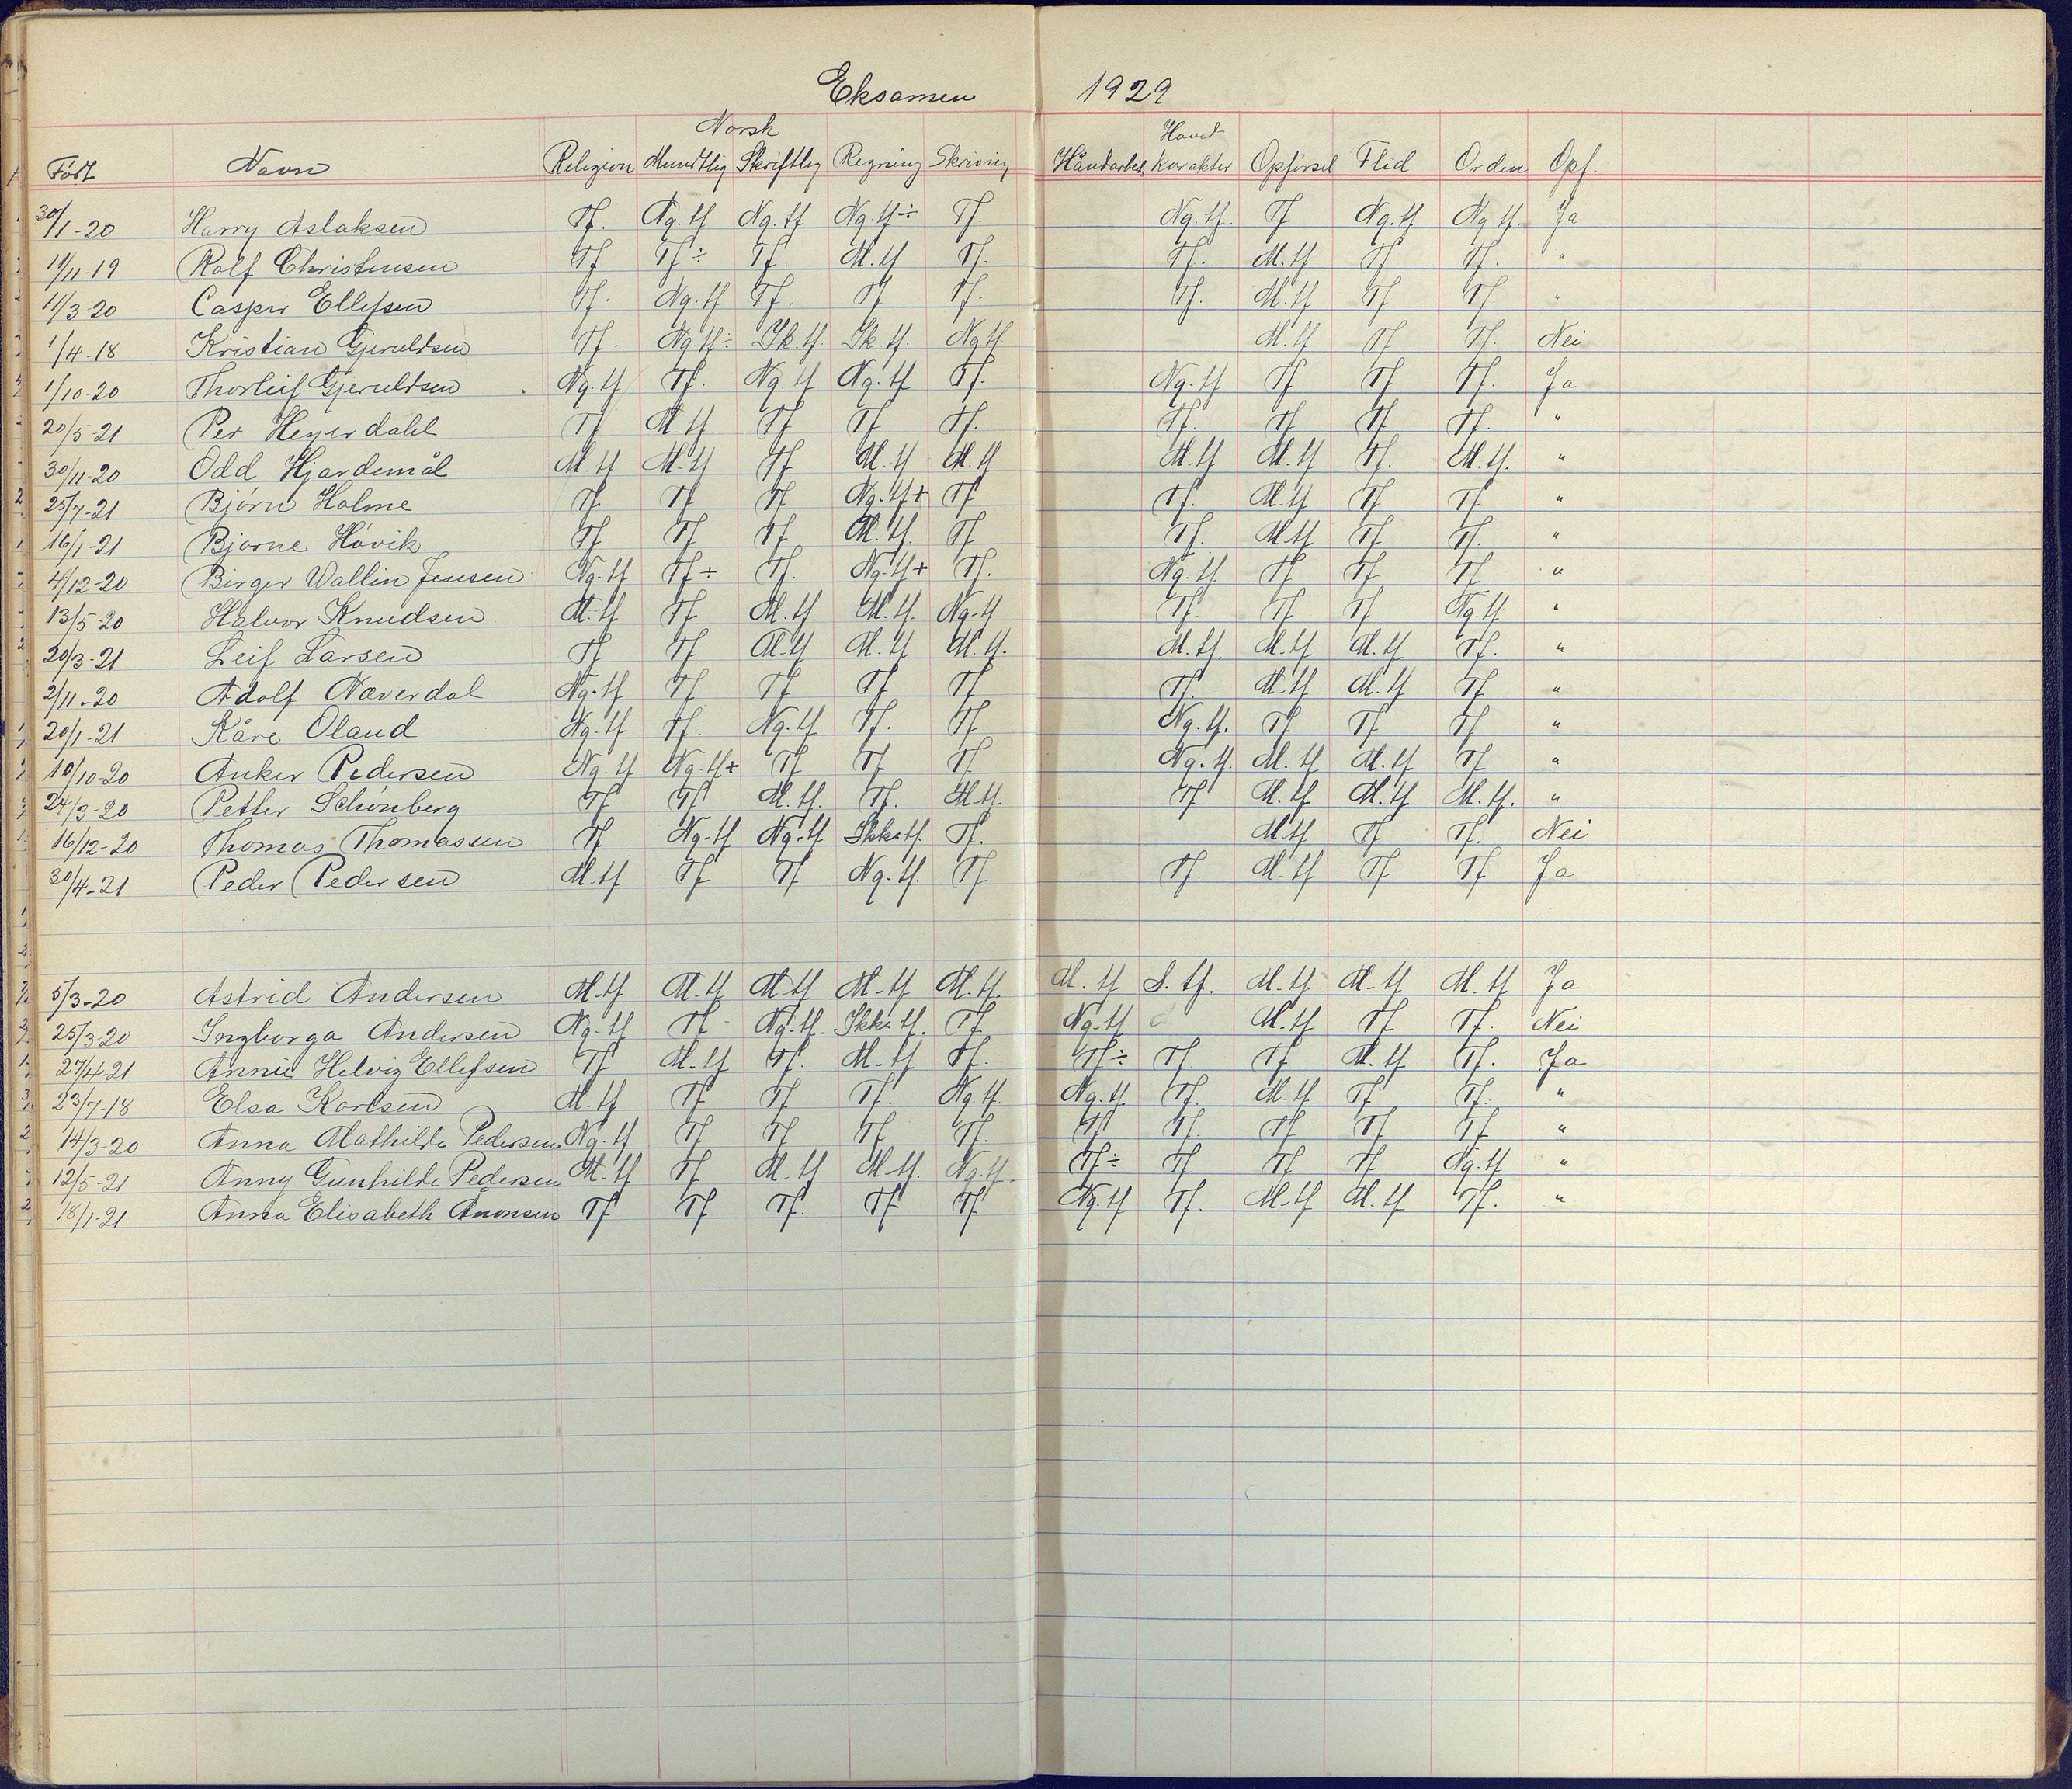 Eksamen 1929
Norsk Hoved-
Født Navn Religion Mundtlig Skriftlig Regning Skrivnig Håndarbeid karakter Opførsel Flid Orden Opf.
30/1-20 Harry Aslaksen Tf. Ng.tf Ng.tf Ng.tf÷ Tf. Ng.tf. Tf Ng.tf Ng.tf. Ja
11/11-19 Rolf Christensen Tf Tf÷ Tf. M.tf Tf. Tf. M.tf Tf Tf. "
11/3-20 Casper Ellefsen Tf. Ng.tf Tf. Tf Tf. Tf. M.tf Tf Tf. "
1/4-18 Kristian Gjeruldsen Tf. Ng.tf÷ Ik.tf. Ik.tf. Ng.tf M.tf Tf Tf. Nei
1/10-20 Thorleif Gjeruldsen Ng.tf Tf. Ng.tf Ng.tf Tf. Ng.tf Tf Tf Tf. Ja
20/5-21 Per Heyerdahl Tf M.tf Tf Tf Tf. Tf. Tf Tf Tf. "
30/11-20 Odd Hjardemål M.tf M.tf Tf M.tf M.tf M.tf M.tf Tf. M.tf. "
25/7-21 Bjørn Holme Tf Tf Tf Ng.tf+ Tf Tf. M.tf Tf Tf "
16/1-21 Bjarne Høvik Tf Tf Tf M.tf. Tf Tf. M.tf Tf Tf. "
4/12-20 Birger Wallin Jensen Ng.tf Tf÷ Tf. Ng.tf+ Tf. Ng.tf Tf Tf Tf "
13/5-20 Halvor Knudsen M.tf Tf M.tf. M.tf. Ng.tf Tf. Tf Tf Ng.tf "
20/3-21 Leif Larsen Tf Tf M.tf M.tf M.tf. M.tf. M.tf M.tf Tf. "
2/11-20 Adolf Næverdal Ng.tf Tf Tf Tf Tf Tf. M.tf M.tf Tf "
20/1-21 Kåre Oland Ng.tf Tf. Ng.tf Tf. Tf Ng.tf. Tf Tf Tf "
10/10-20 Anker Pedersen Ng.tf Ng.tf+ Tf Tf Tf Ng.tf. M.tf M.tf Tf "
24/3-20 Petter Schønberg Tf Tf M.tf. Tf. M.tf. Tf M.tf M.tf M.tf. "
16/12-20 Thomas Thomassen Tf Ng.tf Ng.tf Ikke tf. Tf. M.tf Tf Tf. Nei
30/4-21 Peder Pedersen M.tf Tf Tf Ng.tf. Tf Tf M.tf Tf Tf Ja
5/3-20 Astrid Andersen M.tf M.tf M.tf M.tf M.tf. M.tf S.tf. M.tf M.tf M.tf Ja
25/3-20 Ingborga Andersen Ng.tf Tf- Ng.tf. Ikke tf. Tf Ng.tf M.tf Tf Tf. Nei
27/4-21 Annie Helvig Ellefsen Tf M.tf Tf. M.tf Tf. Tf÷ Tf. Tf M.tf Tf. Ja
23/7-18 Elsa Karlsen M.tf Tf Tf Tf. Ng.tf. Ng.tf. Tf. M.tf Tf Tf. "
14/3-20 Anna Mathilde Pedersen Ng.tf Tf Tf Tf Tf. Tf Tf. Tf Tf Tf "
12/5-21 Anny Gunhilde Pedersen M.tf Tf M.tf M.tf. Ng.tf. Tf÷ Tf Tf Tf Ng.tf "
18/1-21 Anna Elisabeth Aanonsen Tf Tf Tf. Tf Tf Ng.tf Tf. M.tf M.tf Tf. "